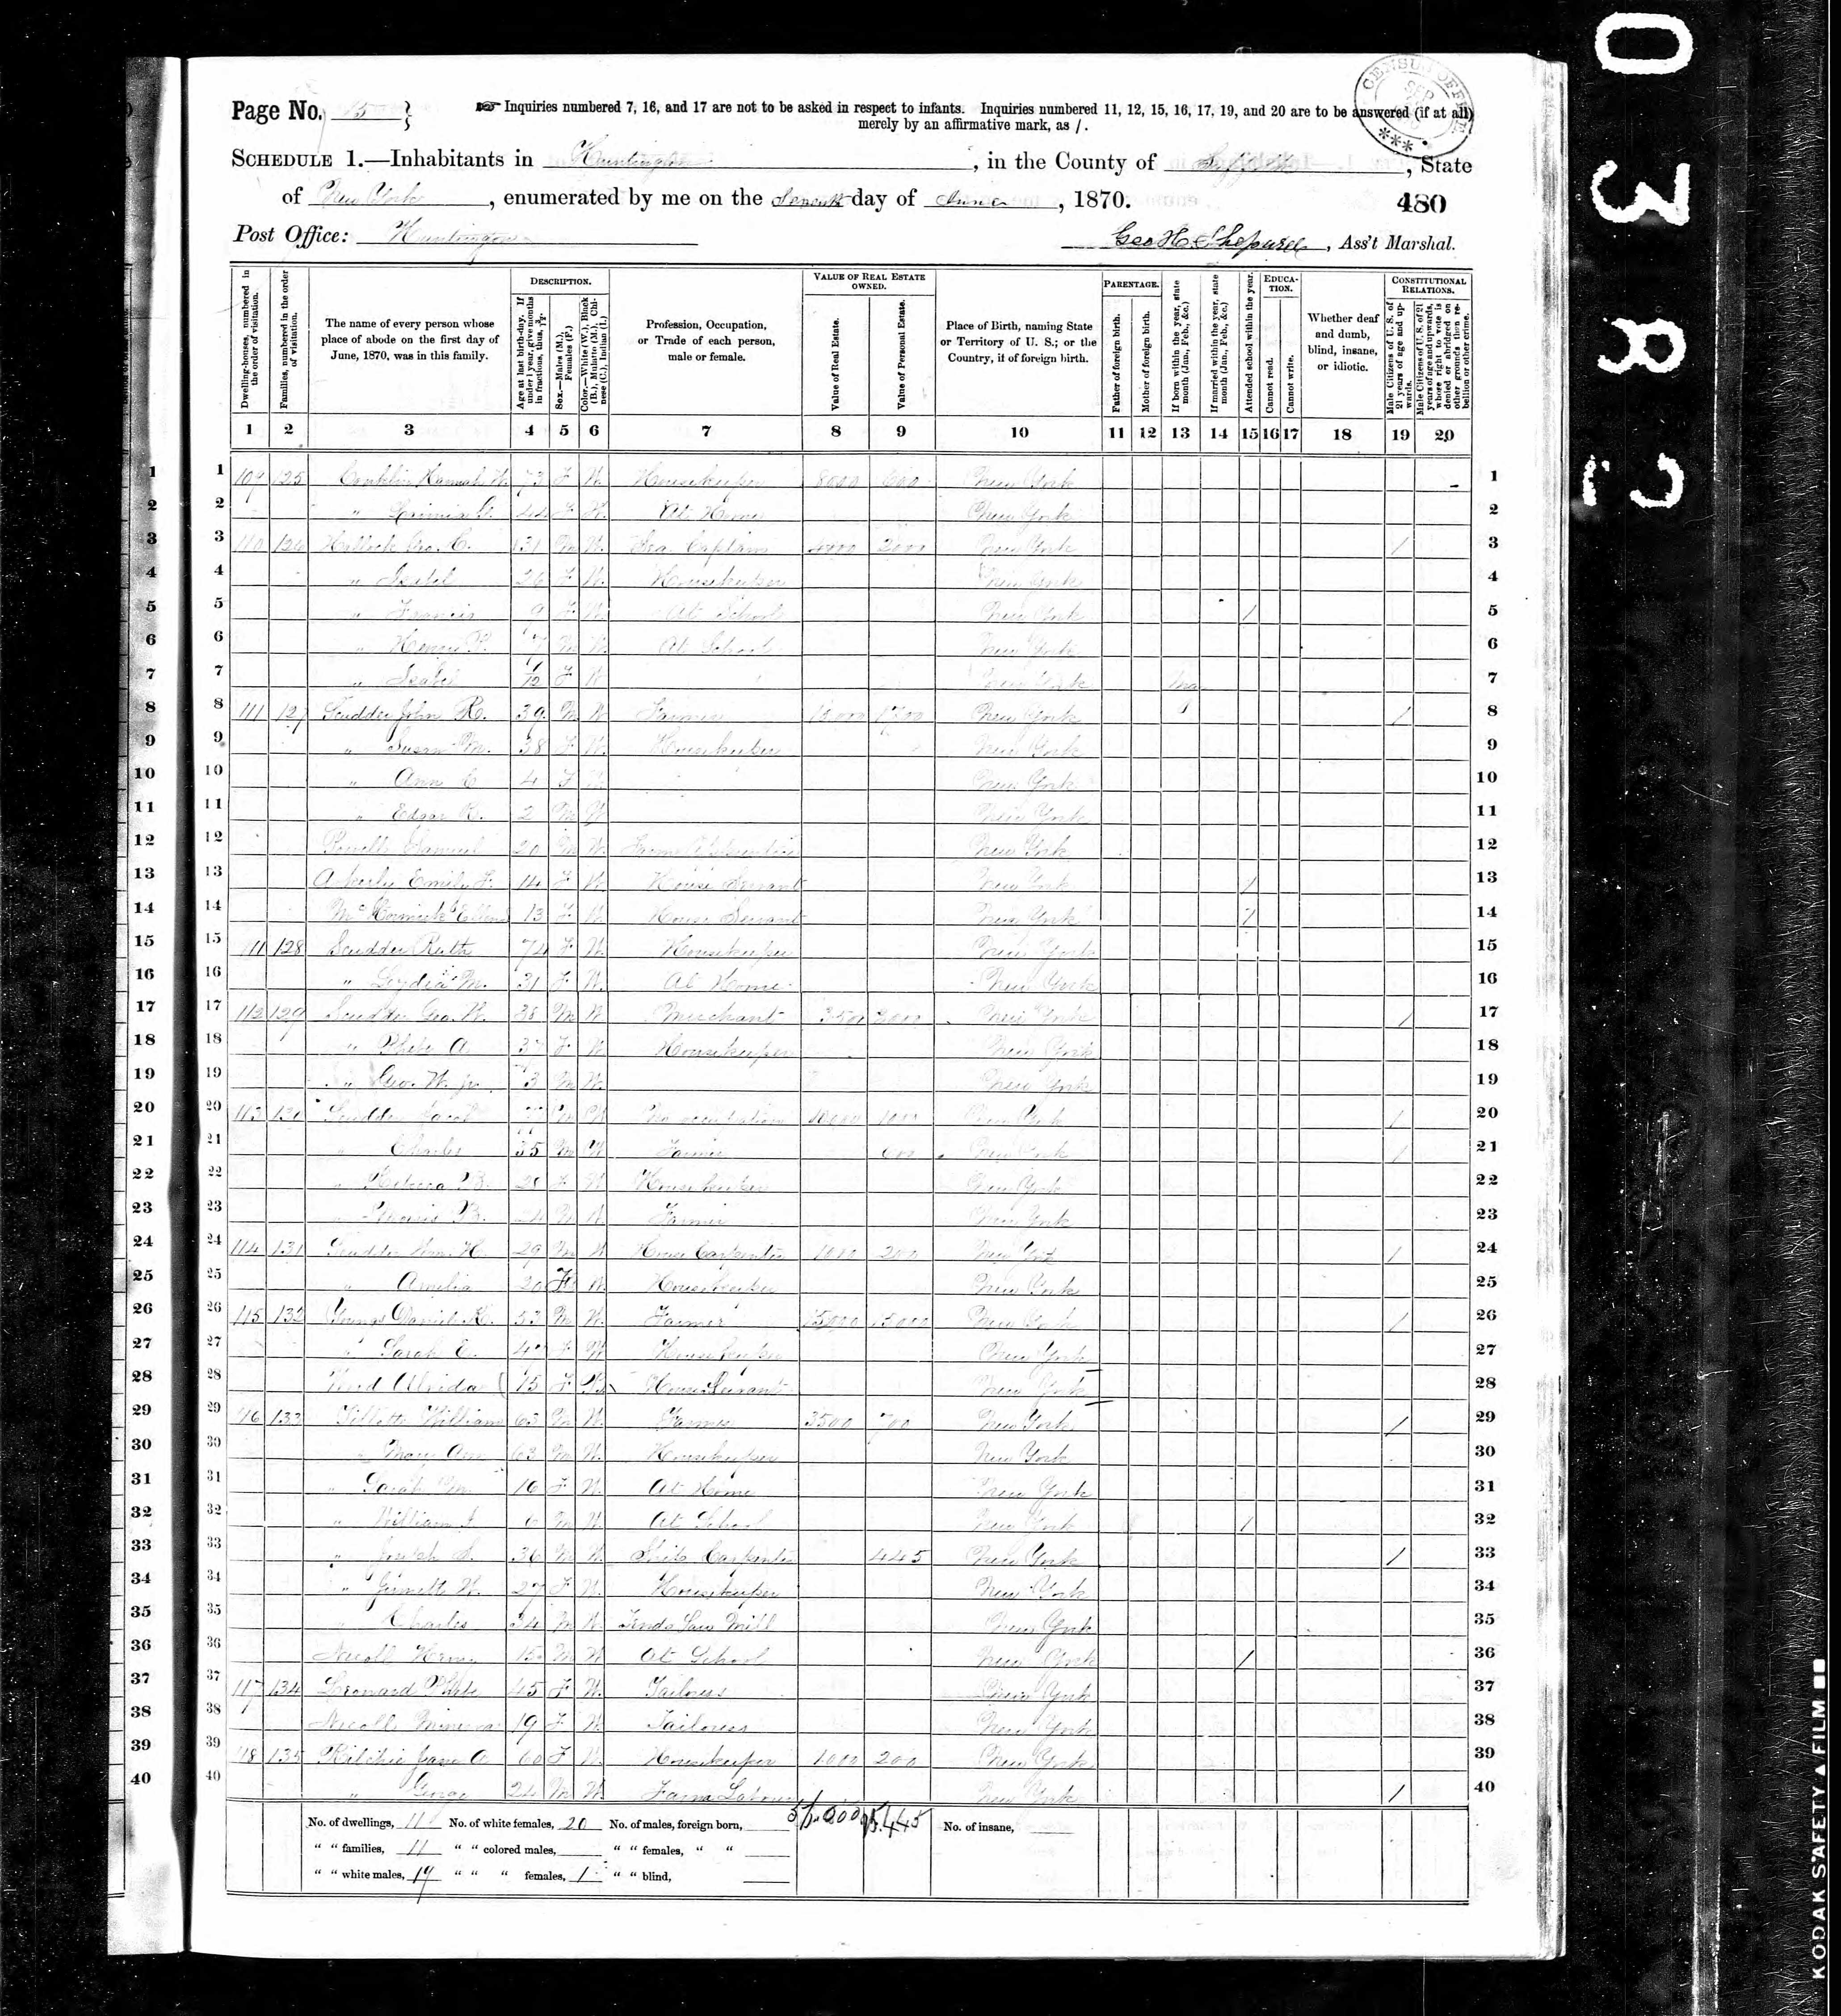 Page No. 15
Inquiries numbered 7, 16, and 17 are not to be asked in respect to infants. Inquiries numbered 11, 12, 15, 16, 17, 19, and 20 are to be answered (if at all)
merely by an affirmative mark, as /.
CENSUS OFFICE SEP
SCHEDULE 1.—Inhabitants in Huntington, in the County of Suffolk, State
of New York, enumerated by me on the Seventh day of June, 1870.
480
Post Office: Huntington
Geo H. , Ass't Marshal.
Dwelling-houses, numbered in the order of visitation.
Families, numbered in the order of visitation.
The name of every person whose place of abode on the first day of June, 1870, was in this family.
DESCRIPTION.
Age at last birth-day. If under 1 year, give months in fractions, thus, 3/12.
Sex.—Males (M.), Females (F.)
Color.—White (W.), Black (B.), Mulatto (M.), Chinese (C.), Indian (I.)
Profession, Occupation, or Trade of each person, male or female.
VALUE OF REAL ESTATE OWNED.
Value of Real Estate.
Value of Personal Estate.
Place of Birth, naming State or Territory of U. S.; or the Country, if of foreign birth.
PARENTAGE.
Father of foreign birth.
Mother of foreign birth.
If born within the year, state month (Jan., Feb., &c.)
If married within the year, state month (Jan., Feb., &c.)
Attended school within the year.
EDUCATION.
Cannot read.
Cannot write.
Whether deaf and dumb, blind, insane, or idiotic.
CONSTITUTIONAL RELATIONS.
Male Citizens of U. S. of 21 years of age and upwards.
Male Citizens of U. S. of 21 years of age and upwards, whose right to vote is denied or abridged on other grounds than rebellion or other crime.
1 2 3 4 5 6 7 8 9 10 11 12 13 14 15 16 17 18 19 20
1 109 125 Conklin Hannah W. 73 F W. Housekeeper 8000 600 New York 1
2 " 44 F W. At Home New York 2
3 110 126 Hallock Geo. C. 31 M W. Sea Captain 4000 2000 New York / 3
4 " Isabel 26 F W. Housekeeper New York 4
5 " Francis 9 F W At School New York / 5
6 " Henry 7 M W. At School New York 6
7 " Isabel 1/12 F W New York May 7
8 111 127 Scudder John R. 39 M W Farmer 15000 1500 New York / 8
9 " Susan M. 38 F W. Housekeeper New York 9
10 " Ann C 4 F W. New York 10
11 " Edgar R. 2 M W New York 11
12 Powell Samuel 20 M W. Farm Apprentice New York 12
13 Ackerly Emily F. 14 F W. House Servant New York / 13
14 Ellen 13 F W. House Servant New York / 14
15 111 128 Scudder Ruth 74 F W. Housekeeper New York 15
16 " Lydia M. 31 F W. At Home New York 16
17 112 129 Scudder Geo. W. 38 M W Merchant 3500 2000 New York / 17
18 " Phebe A 37 F W Housekeeper New York 18
19 " Geo. W. jr. 3 M W. New York 19
20 113 130 Scudder Jacob M W No occupation 10000 1000 New York / 20
21 " Charles 35 M W Farmer 600 New York / 21
22 " Rebecca B. F W Housekeeper New York 22
23 " B. M W Farmer New York 23
24 114 131 Scudder Wm. H. 29 M W House Carpenter 1000 200 New York / 24
25 " Amelia 20 F W. Housekeeper New York 25
26 115 132 Youngs Daniel K. 53 M W. Farmer 15000 15000 New York / 26
27 " Sarah E. F W Housekeeper New York 27
28 Alvida 15 F B House Servant New York 28
29 116 133 Tillotts William 63 M W. Farmer 3500 700 New York / 29
30 " Mary Ann 63 M W. Housekeeper New York 30
31 " Sarah M. 16 F W. At Home New York 31
32 " William J 6 M W. At School New York / 32
33 " Joseph S. 36 M W. Ship Carpenter 445 New York / 33
34 " W. 27 F W. Housekeeper New York 34
35 " Charles 34 M W. Tends Saw Mill New York 35
36 Nicoll Henry 15 M W At School New York / 36
37 117 134 Leonard Phebe 45 F W. Tailoress New York 37
38 Nicoll Minerva 19 F W. Tailoress New York 38
39 118 135 Ritchie Jane A 60 F W. Housekeeper 1000 200 New York 39
40 " George 24 M W. Farm Laborer New York / 40
No. of dwellings, 11 No. of white females, 20 No. of males, foreign born, 445 No. of insane,
" " families, 11 " " colored males, " " females, " "
" " white males, 19 " " " females, 1 " " blind,
KODAK SAFETY FILM